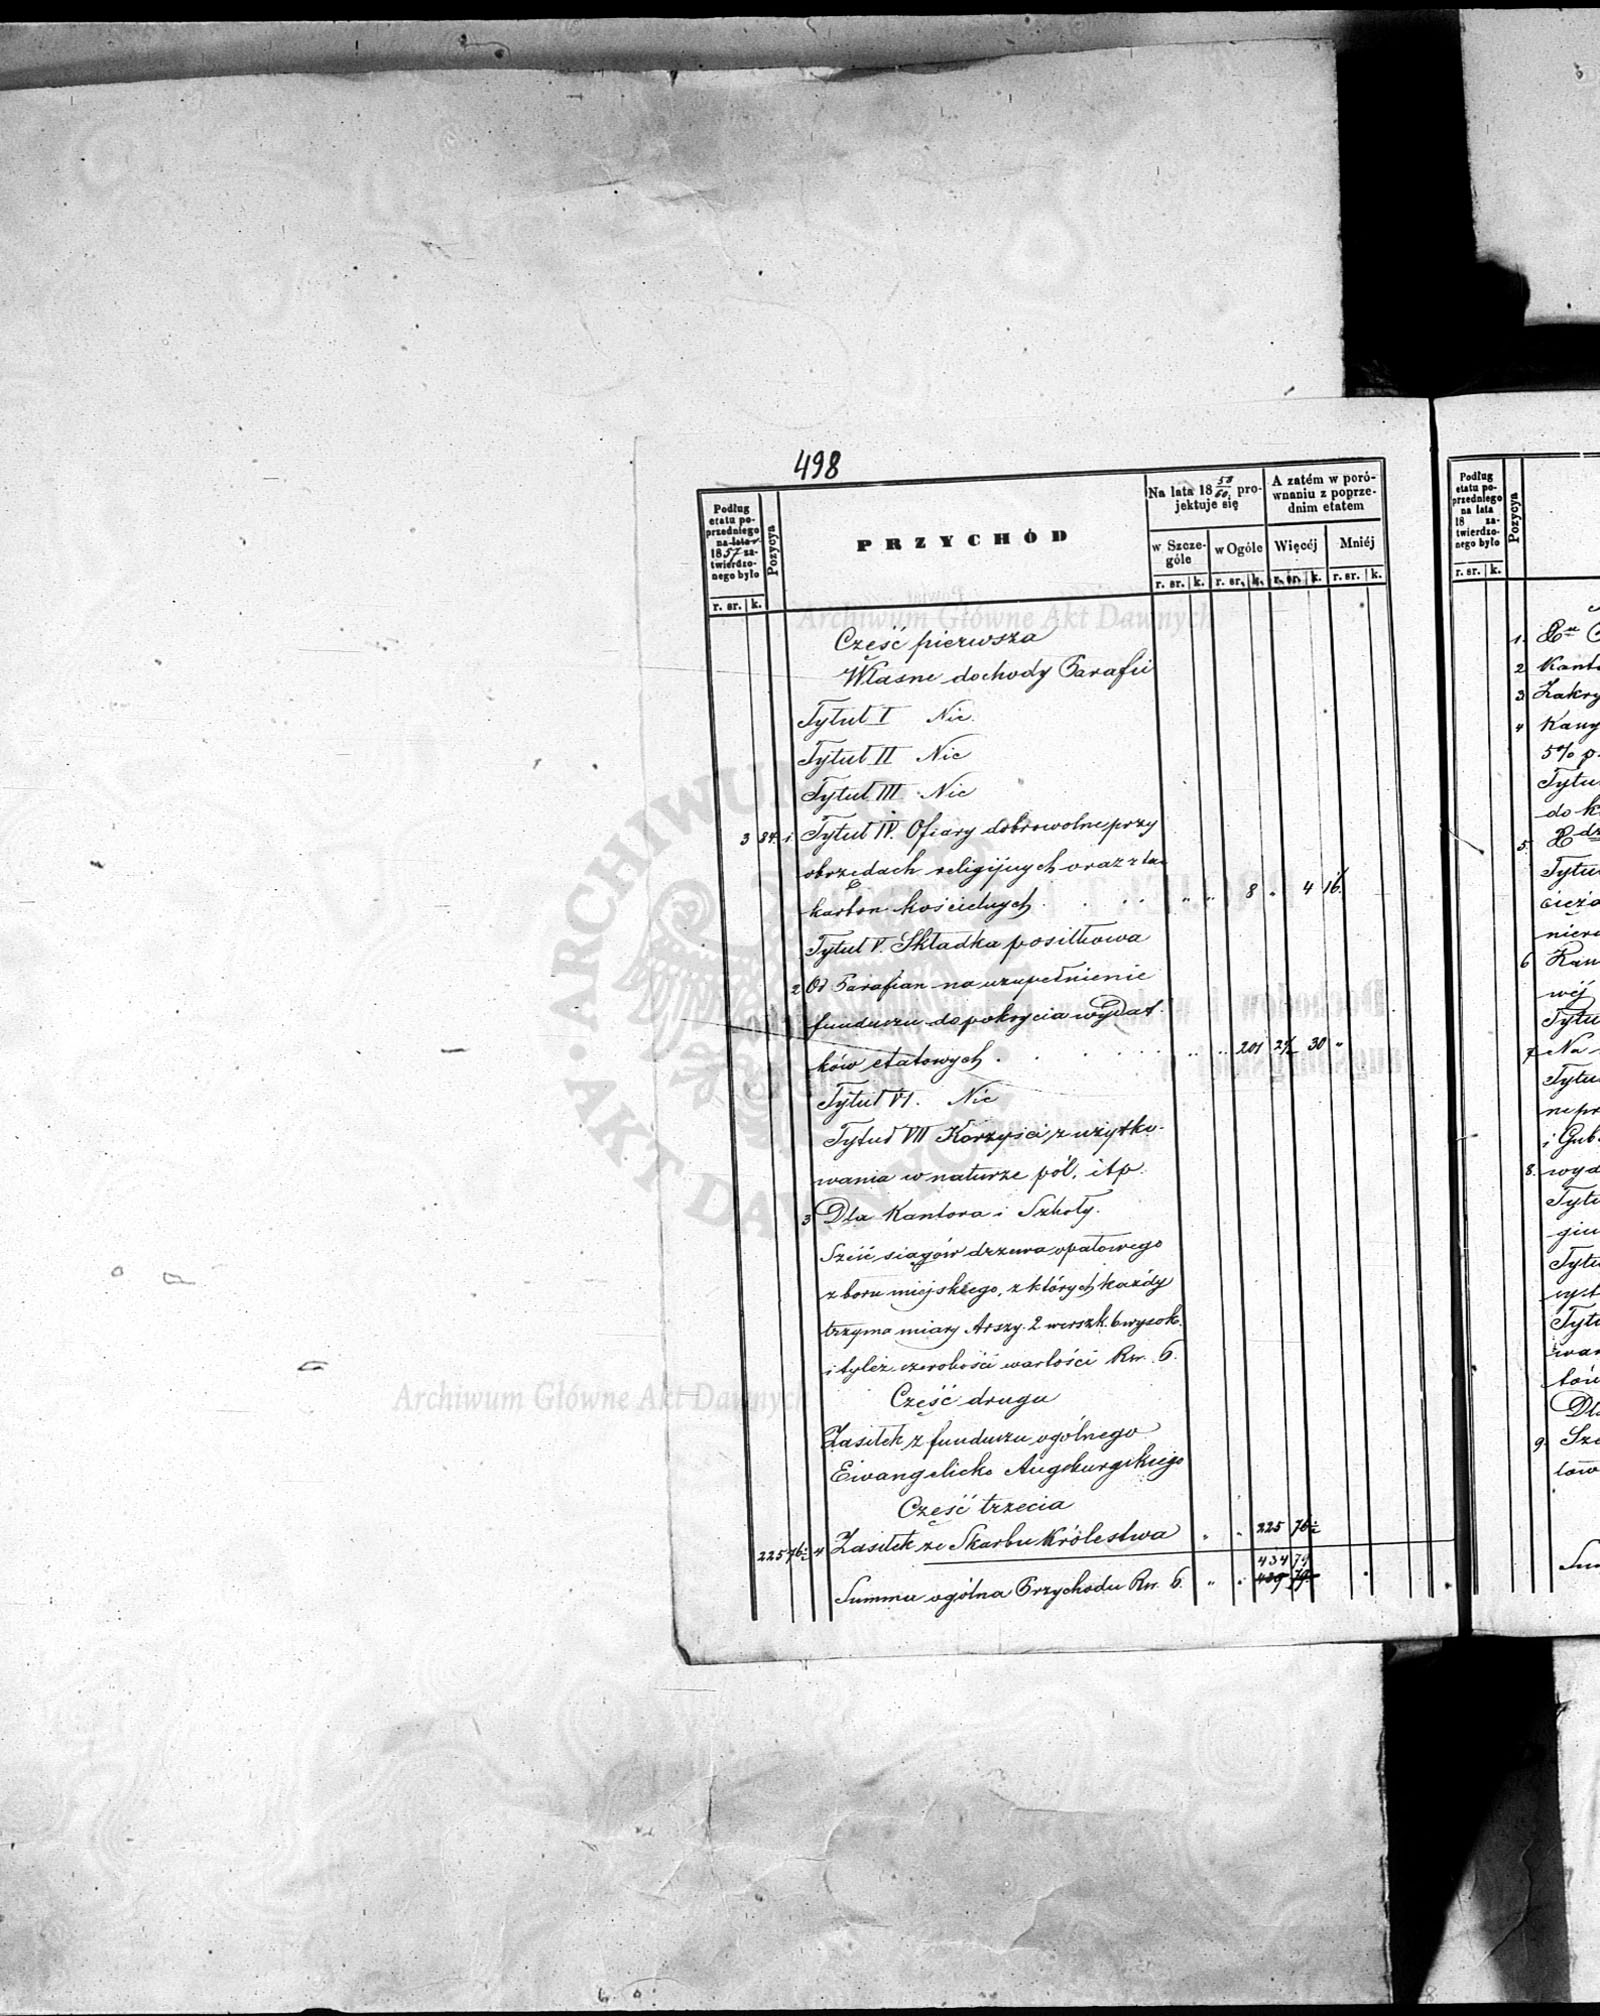 498
Podług etatu poprzedniego na lata 1857 zatwierdzonego było
r. sr. k.
Pozycya
PRZYCHÓD
Na lata 18 58/60 projektuje się
w Szczególe
r. sr. k.
w Ogóle
r. sr. k.
A zatém w porównaniu z poprzednim etatem
Więcéj
r. sr. k.
Mniéj
r. sr. k.
Część pierwsza
Własne dochody Parafii
Tytuł I Nic.
Tytuł II Nic
Tytuł III Nic
3 84 1 Tytuł IV. Ofiary dobrowolne przy
obrzędach religijnych oraz z
karbon kościelnych 8 4 16
Tytuł V. Składka posiłkowa
2 Od Parafian na uzupełnienie
funduszu do pokrycia wydat-
ków etatowych 201 30
Tytuł VI. Nic
Tytuł VII Korzyści z użytko-
wania w naturze pól, itp.
3 Dla Kantora i Szkoły.
Sześć siągów drzewa opałowego
z boru miejskiego, z których każdy
trzyma miary Arszy. 2 werszk. 6 wysok.
i tyleż szerokości wartości Rsr. 6.
Część druga
Zasiłek z funduszu ogólnego
Ewangelicko Augsburgskiego
Część trzecia
225 76½ 4 Zasiłek ze Skarbu Królestwa 225 76½
434 79
439 79
Summa ogólna Przychodu Rsr.
Podług etatu poprzedniego na lata 18 zatwierdzonego było
r. sr. k.
Pozycya
1.
2 Kanto
3 Zakry
4
5% p
Tytu
do k
5.
Tytu
6
Tytu
7 Na
Tytu
i Gub.
8. wyd
Tytu
Tytu
Tytu
9.
ARCHIWUM GŁÓWNE AKT DAWNYCH
Archiwum Główne Akt Dawnych
Archiwum Główne Akt Dawnych